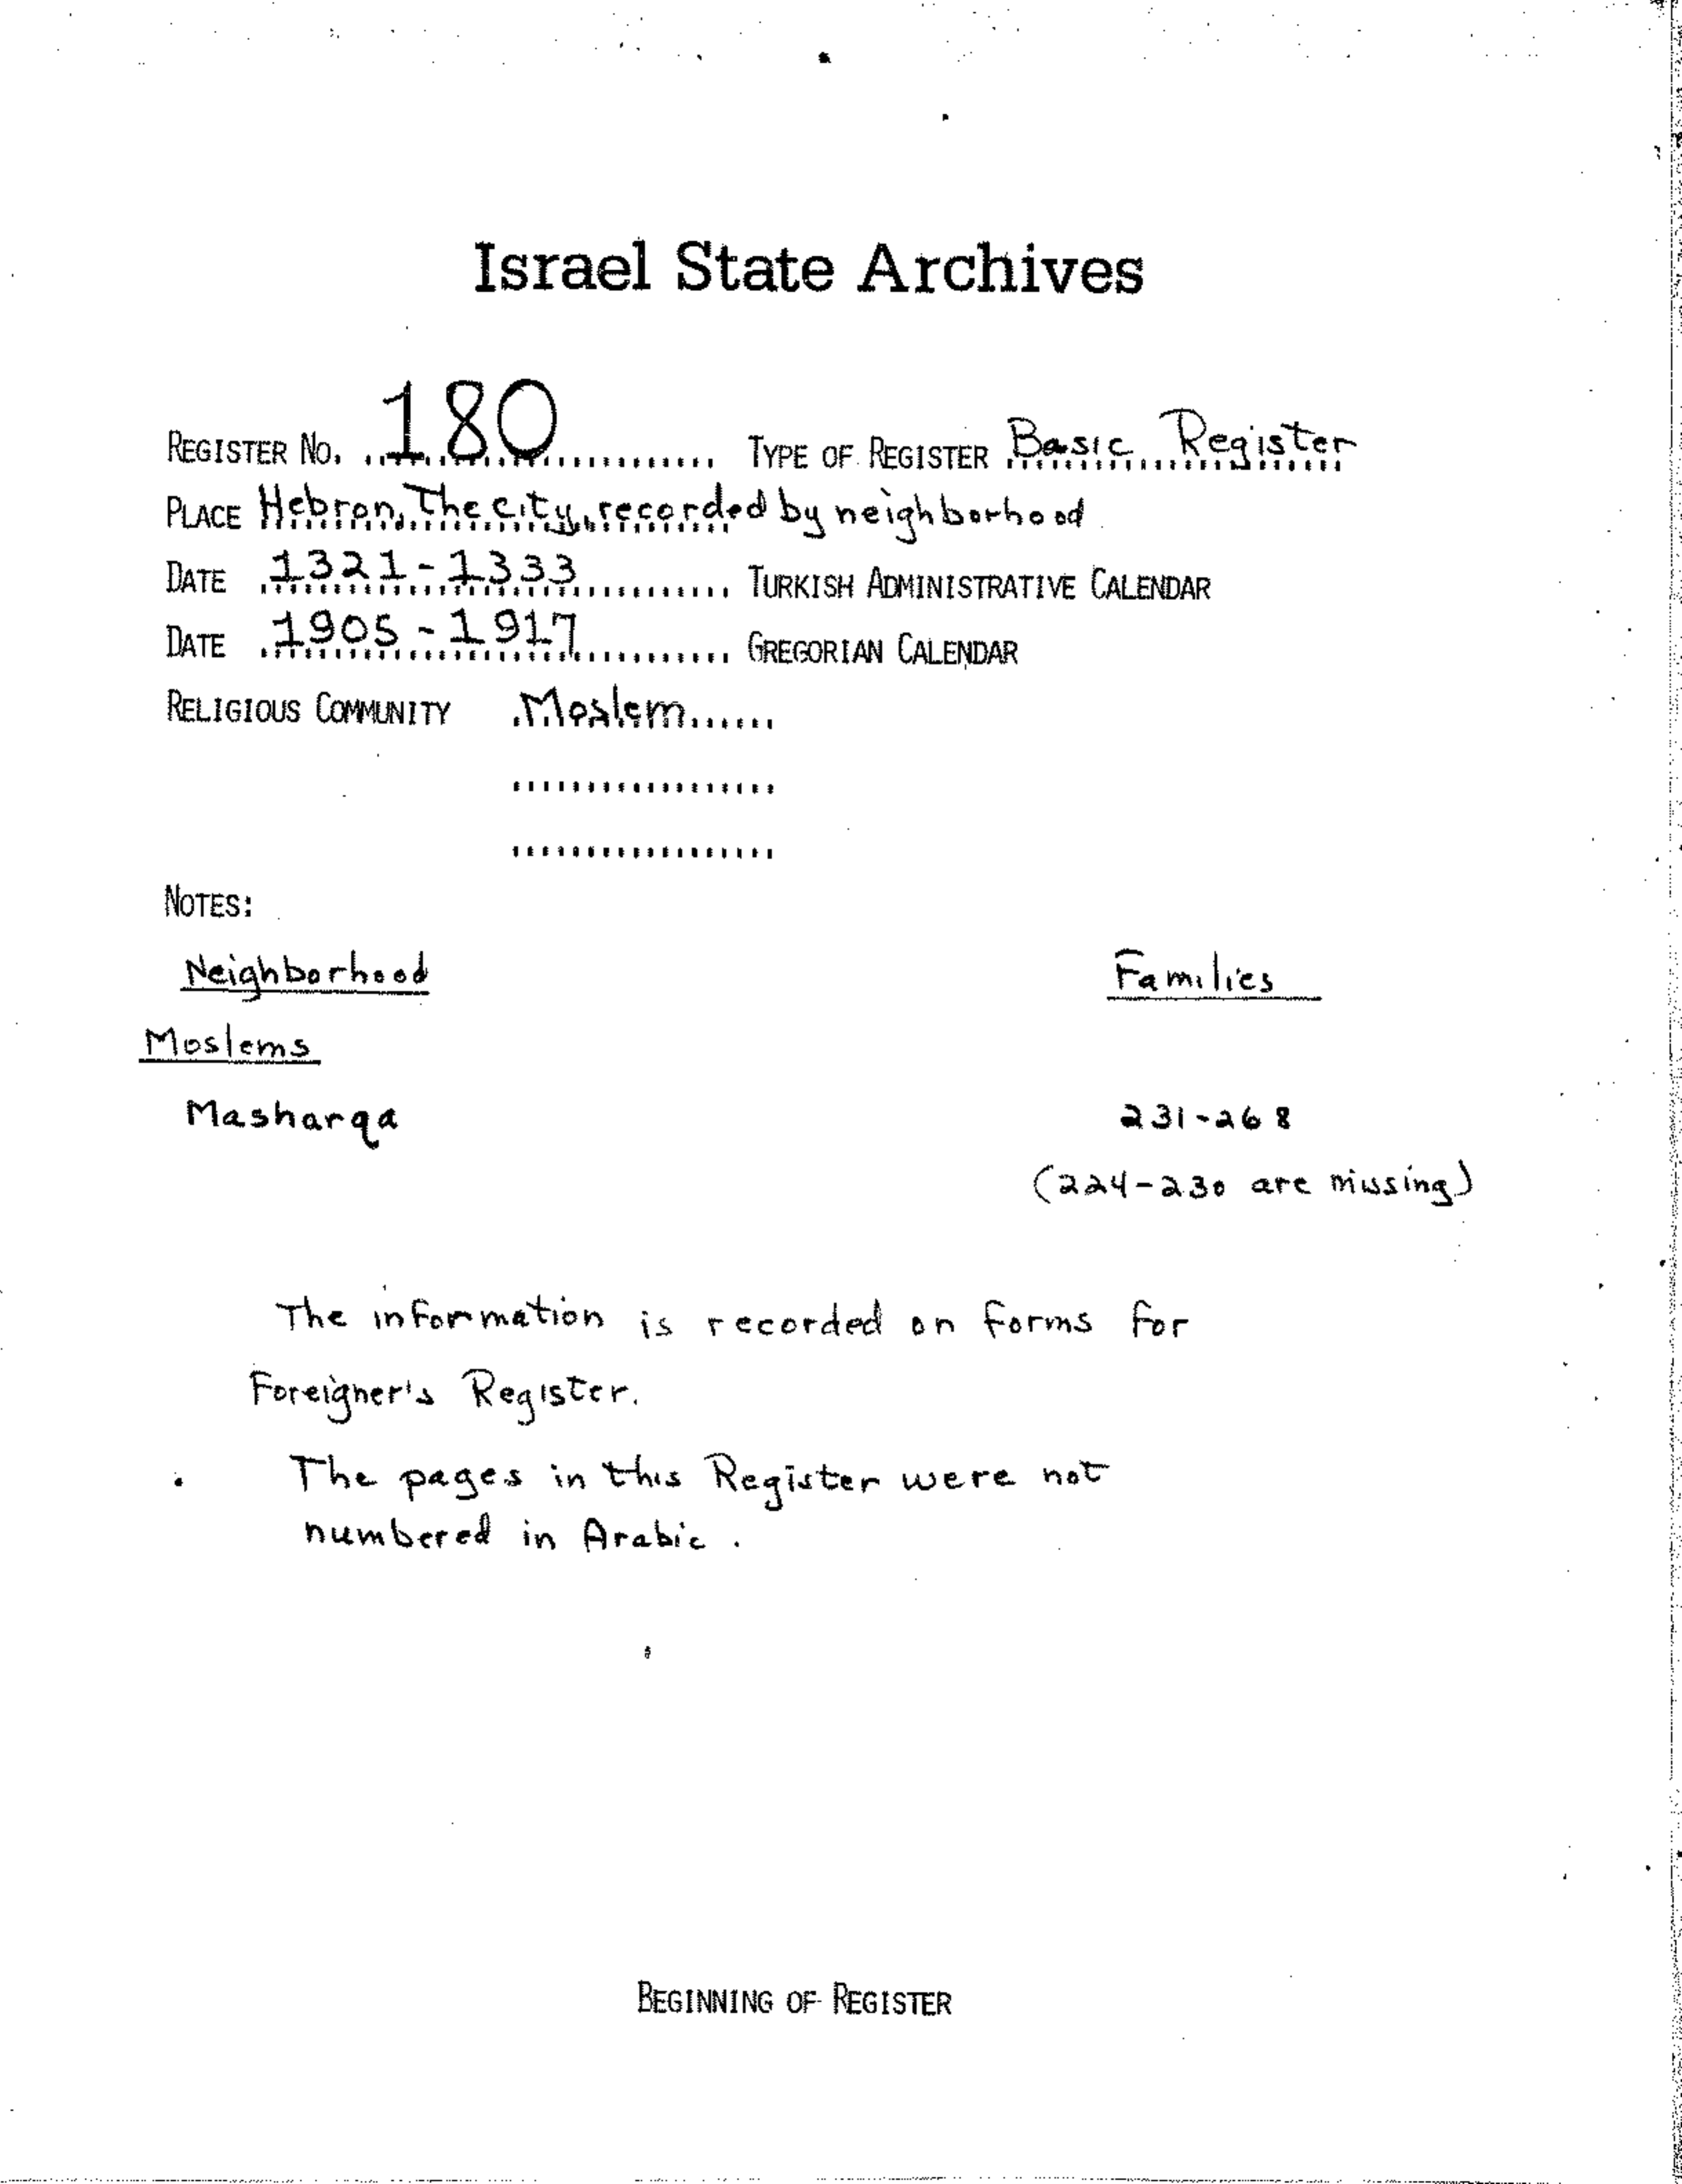 Israel State Archives
REGISTER NO. 180 TYPE OF REGISTER Basic Register
PLACE Hebron, The city, recorded by neighborhood
DATE 1321-1333 TURKISH ADMINISTRATIVE CALENDAR
DATE 1905-1917 GREGORIAN CALENDAR
RELIGIOUS COMMUNITY Moslem
NOTES:
Neighborhood Families
Moslems
Masharqa 231-268
(224-230 are missing)
The information is recorded on forms for
Foreigner's Register.
The pages in this Register were not
numbered in Arabic.
BEGINNING OF REGISTER